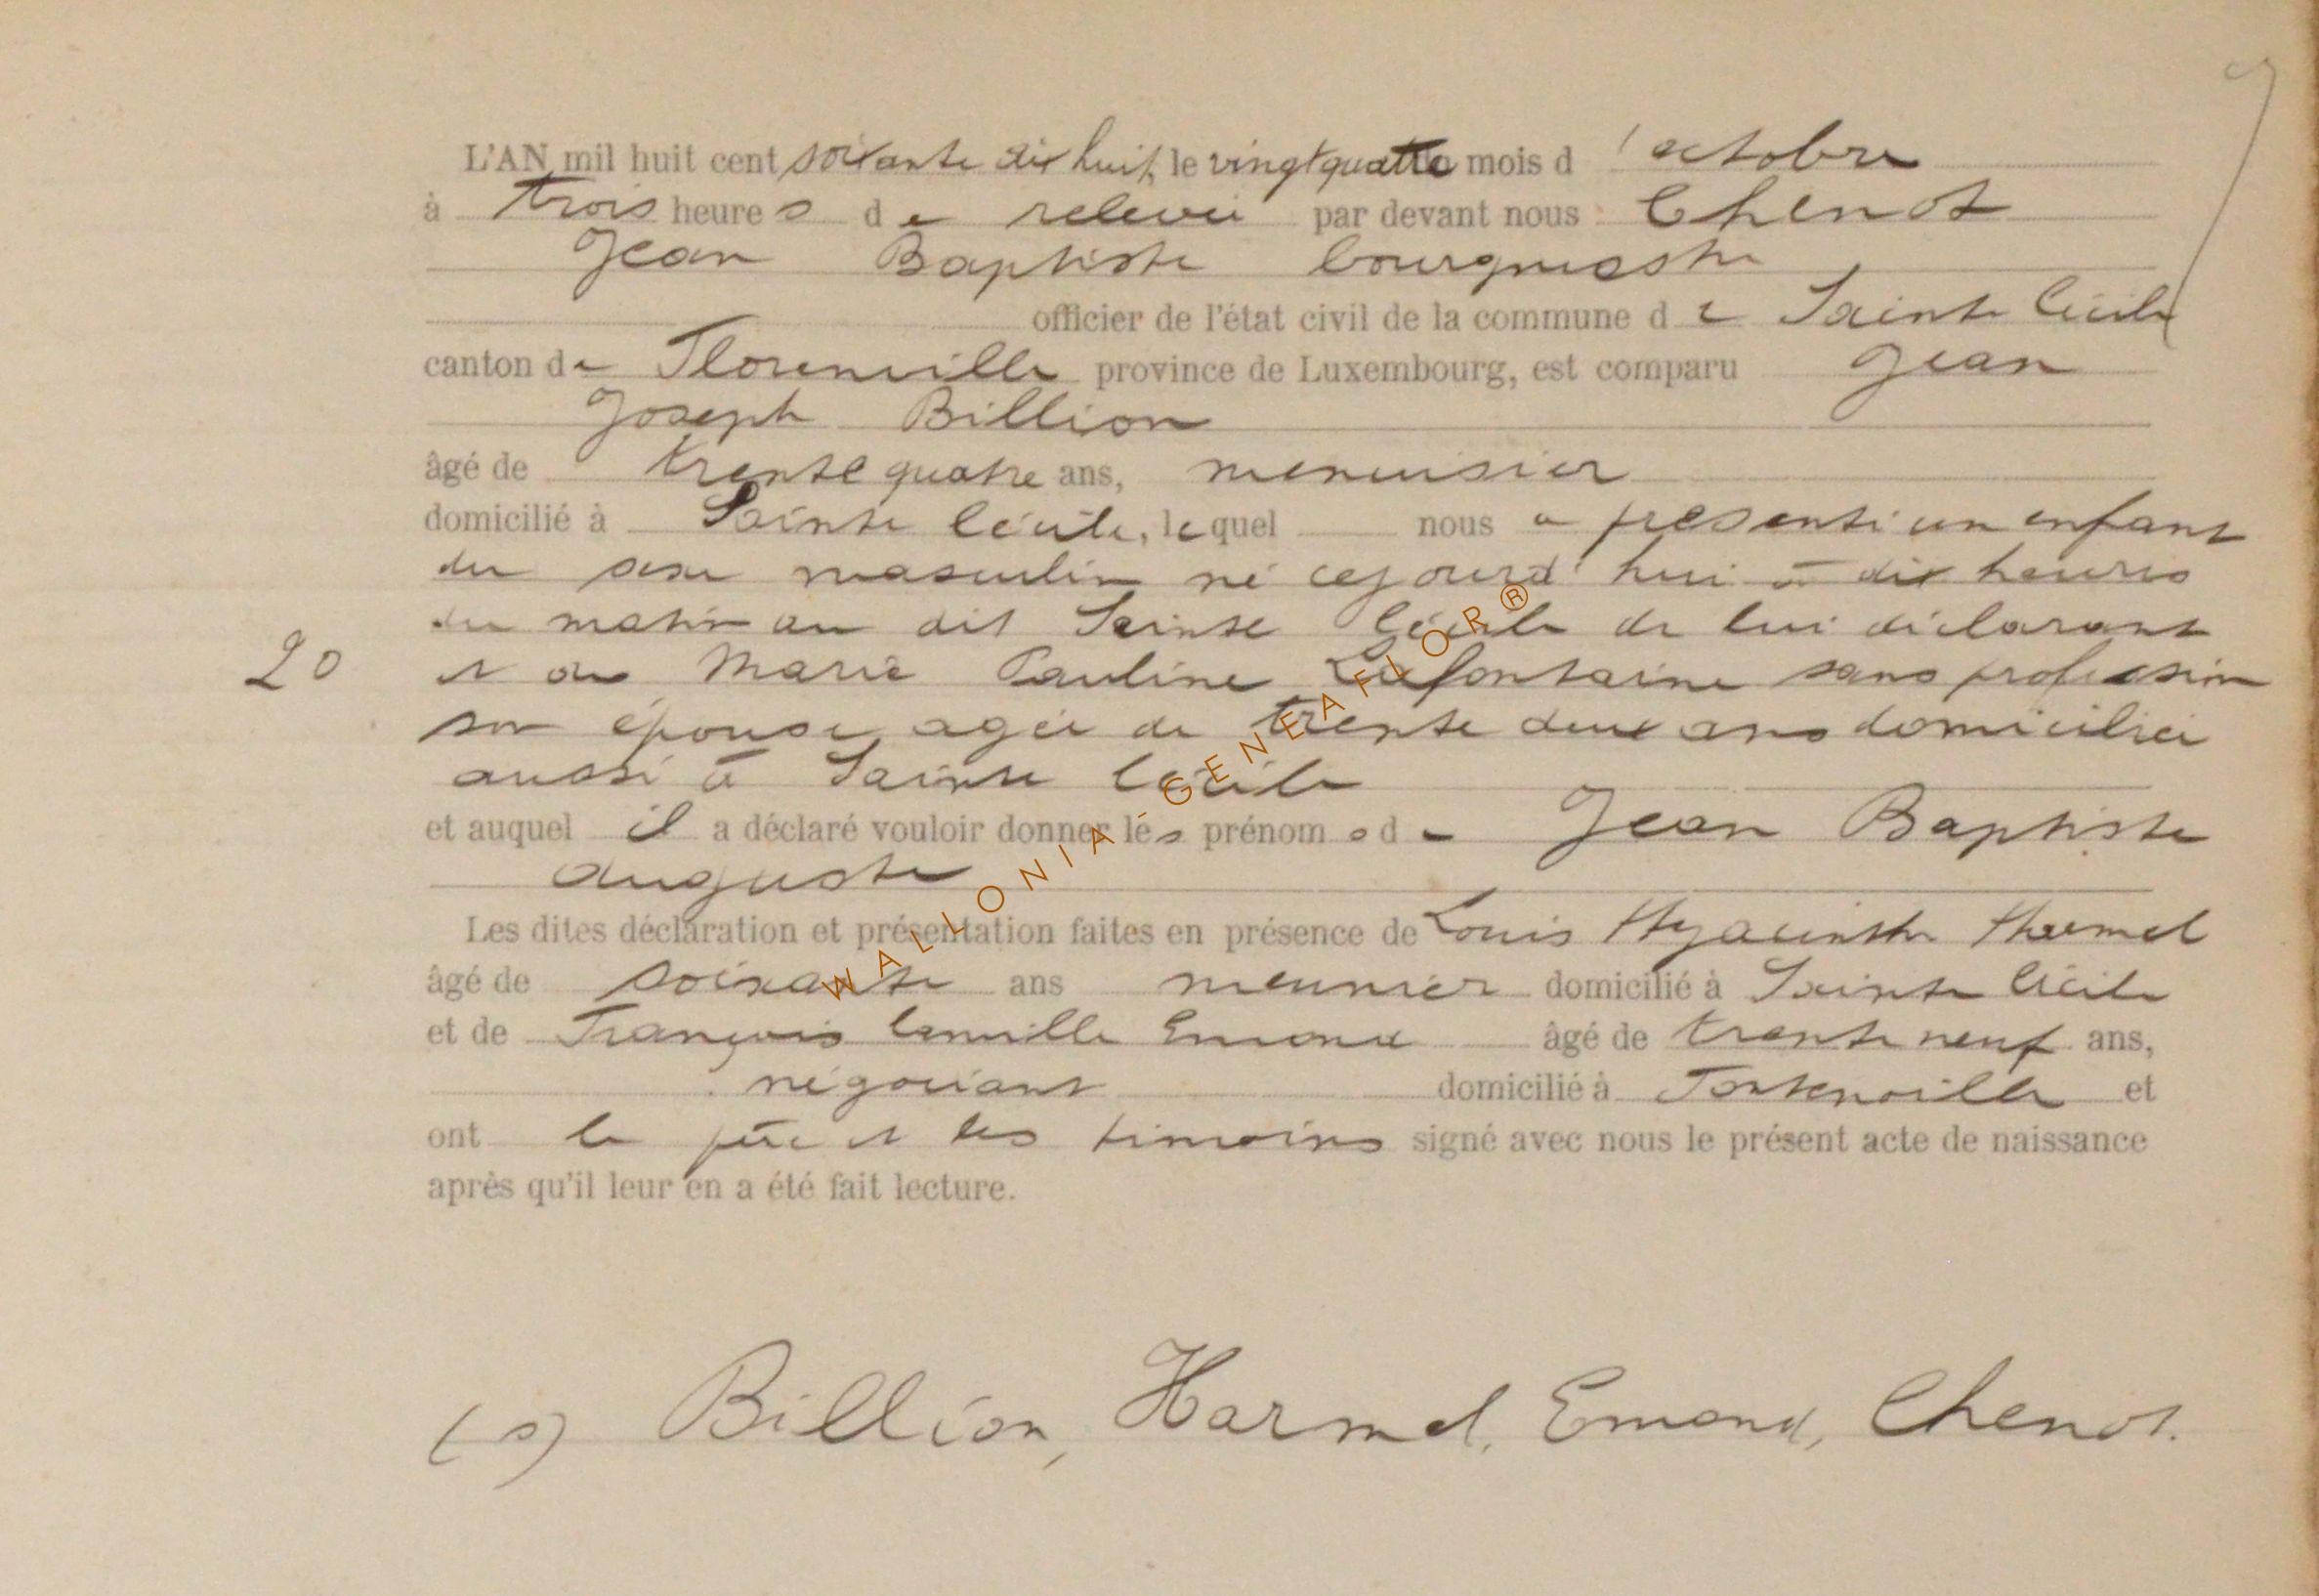 L'AN mil huit cent soixante dix huit, le vingt quatre mois d'octobre
à trois heures de relevée par devant nous Chenot
Jean Baptiste bourgmestre
officier de l'état civil de la commune de Sainte Cécile
canton de Florenville province de Luxembourg, est comparu Jean
Joseph Billion
âgé de trente quatre ans, menuisier
domicilié à Sainte Cécile, lequel nous a présenté un enfant
du sexe masculin né cejourd'hui à dix heures
du matin au dit Sainte Cécile de lui déclarant
20 et de Marie Pauline Lafontaine sans profession
son épouse, agée de trente deux ans domiciliée
aussi à Sainte Cécile
et auquel il a déclaré vouloir donner les prénoms de Jean Baptiste
Auguste
Les dites déclaration et présentation faites en présence de Louis Hyacinthe Harmel
âgé de soixante ans meunier domicilié à Sainte Cécile
et de François Camille Emond âgé de trente neuf ans,
négociant domicilié à Fontenoille et
ont le père et les témoins signé avec nous le présent acte de naissance
après qu'il leur en a été fait lecture.
(s) Billion, Harmel, Emond, Chenot.
WALLONIA-GENEAFLOR®